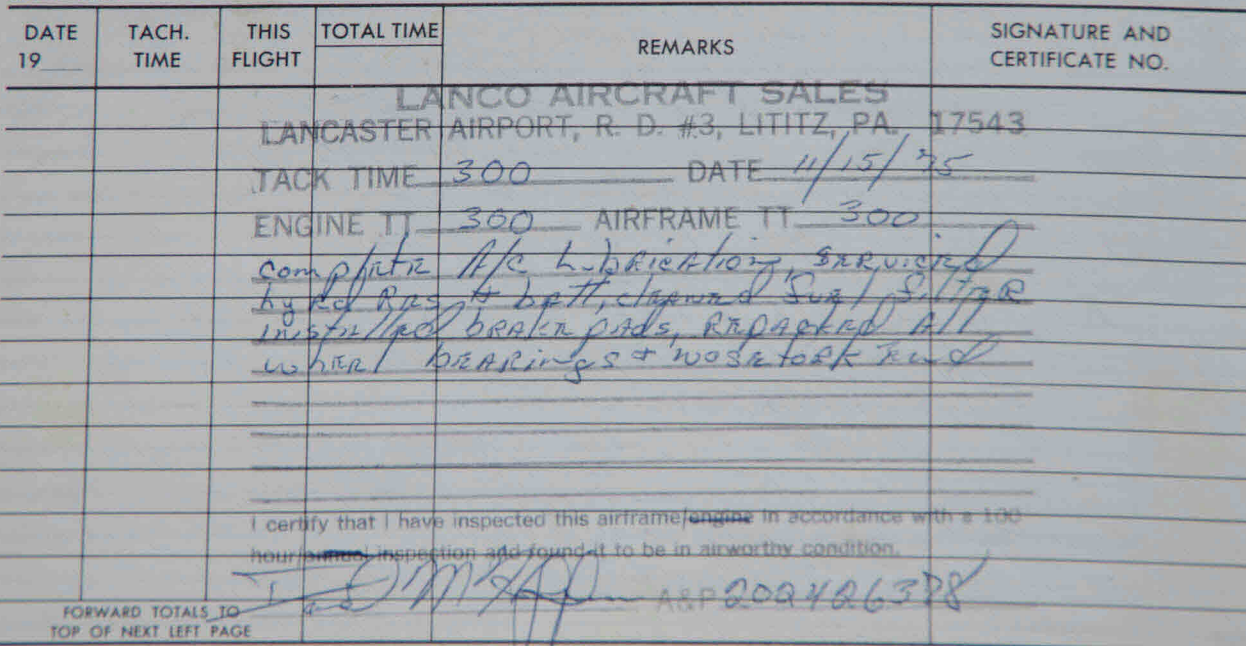 DATE 19__ TACH. TIME THIS FLIGHT TOTAL TIME REMARKS SIGNATURE AND CERTIFICATE NO.
LANCO AIRCRAFT SALES
LANCASTER AIRPORT, R. D. #3, LITITZ, PA. 17543
TACK TIME 300 DATE 11/15/75
ENGINE TT 300 AIRFRAME TT 300
complete A/c Lubrication, serviced
by Rd Res & batt, cleaned fuel filter
installed brake pads, Repacked All
wheel bearings &
I certify that I have inspected this airframe/engine in accordance with a 100
hour/annual inspection and found it to be in airworthy condition.
A&P
FORWARD TOTALS TO
TOP OF NEXT LEFT PAGE